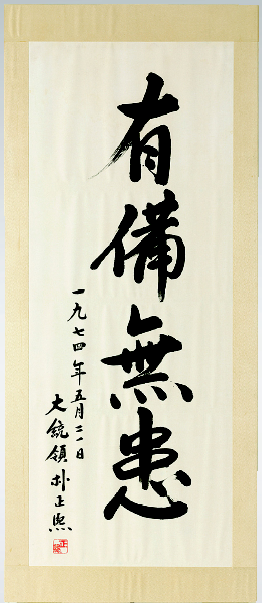 有備無患
一九七四年五月二一日
大統領 朴正熙